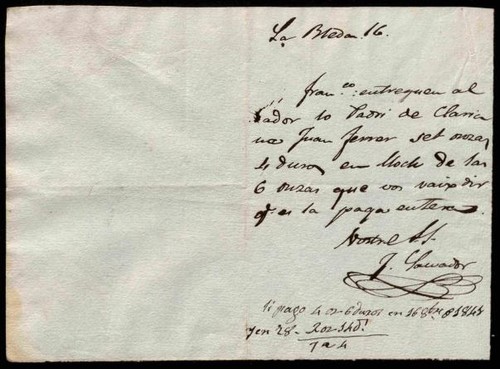 La Bledan 16.
Fran.co: entreguen al
dador lo Padri de Claria
na Juan Ferrer set onzas
4 duros en lloch de las
6 onzas que vos vaix dir
q.e es la paga entera.
Vostre
J. Salvador
li pago 4 on 6 duros en 16 8bre 1844
y en 28- 2 on 14 d.s
7 " 4